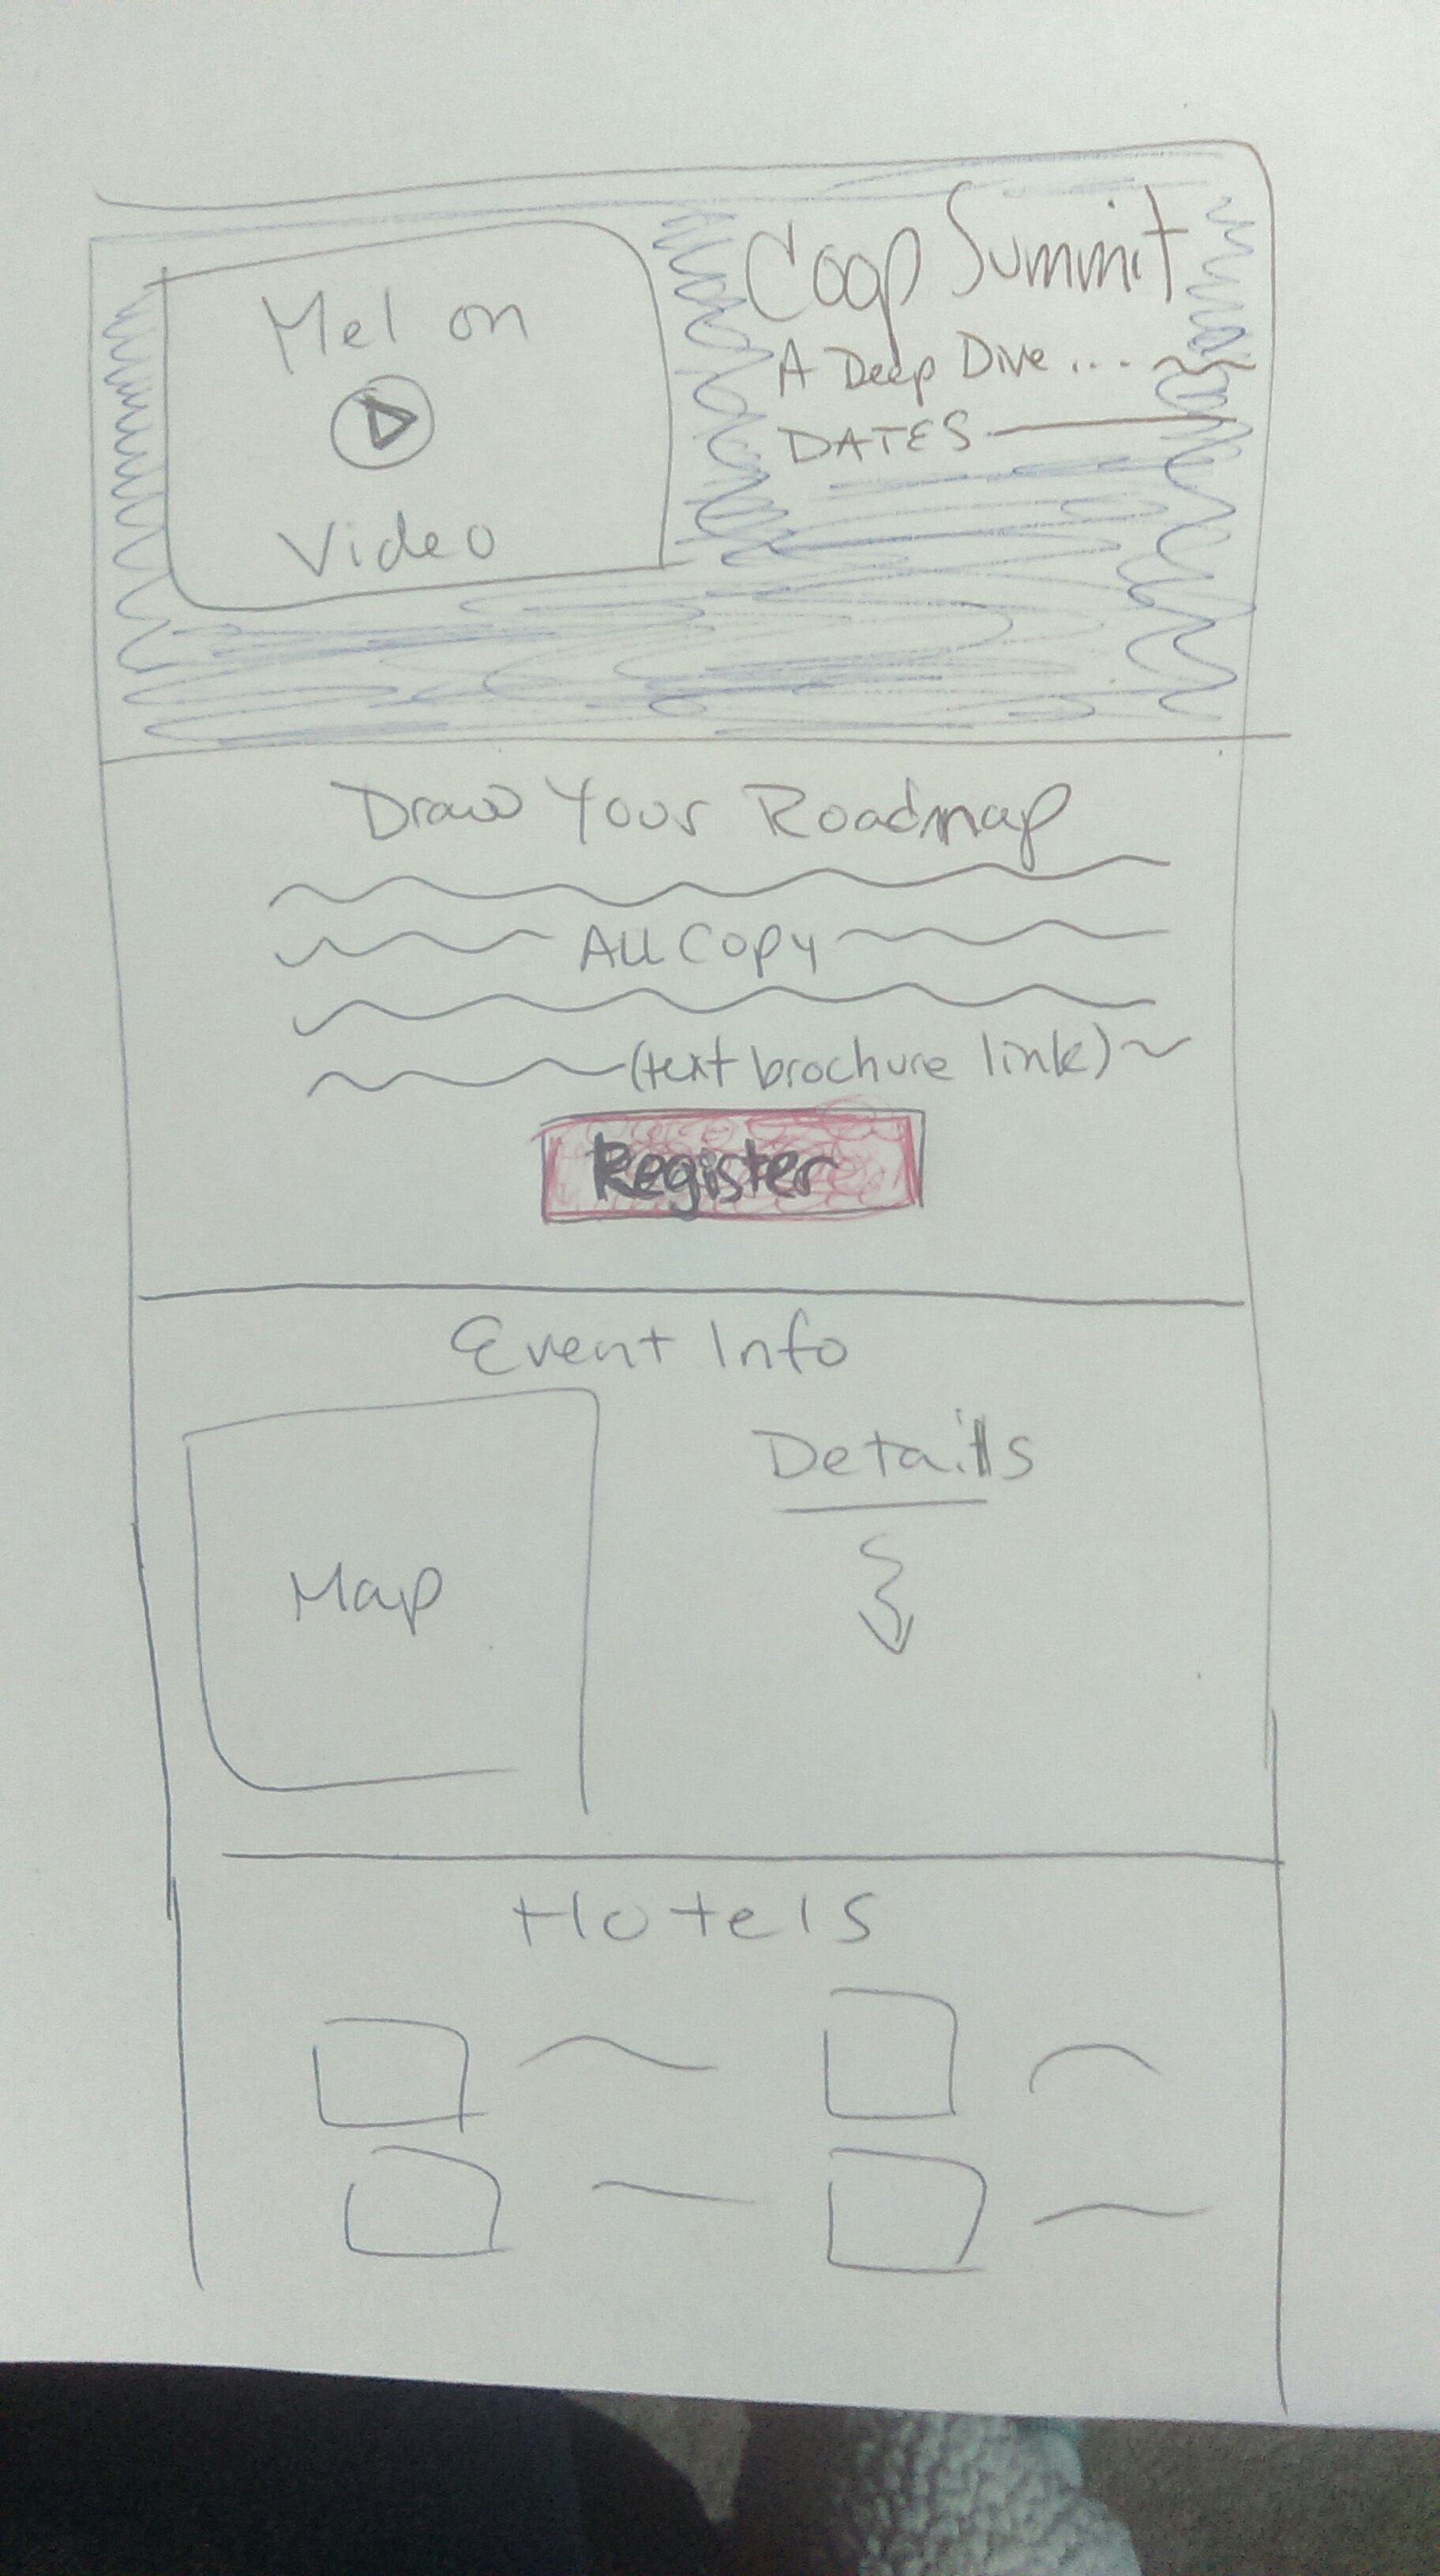 Mel on
Video
Coop Summit
A Deep Dive ...
DATES
Draw Your Roadmap
All Copy
(text brochure link)
Register
Event Info
Map
Details
Hotels